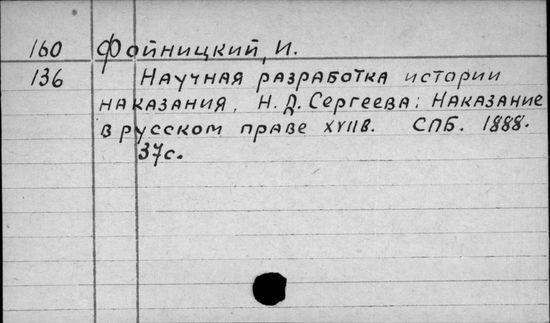 160 Фойницкий, И.
136 Научная разработка истории
наказания, Н.Д. Сергеева: Наказание
в русском праве XVII в. СПБ. 1888.
37с.